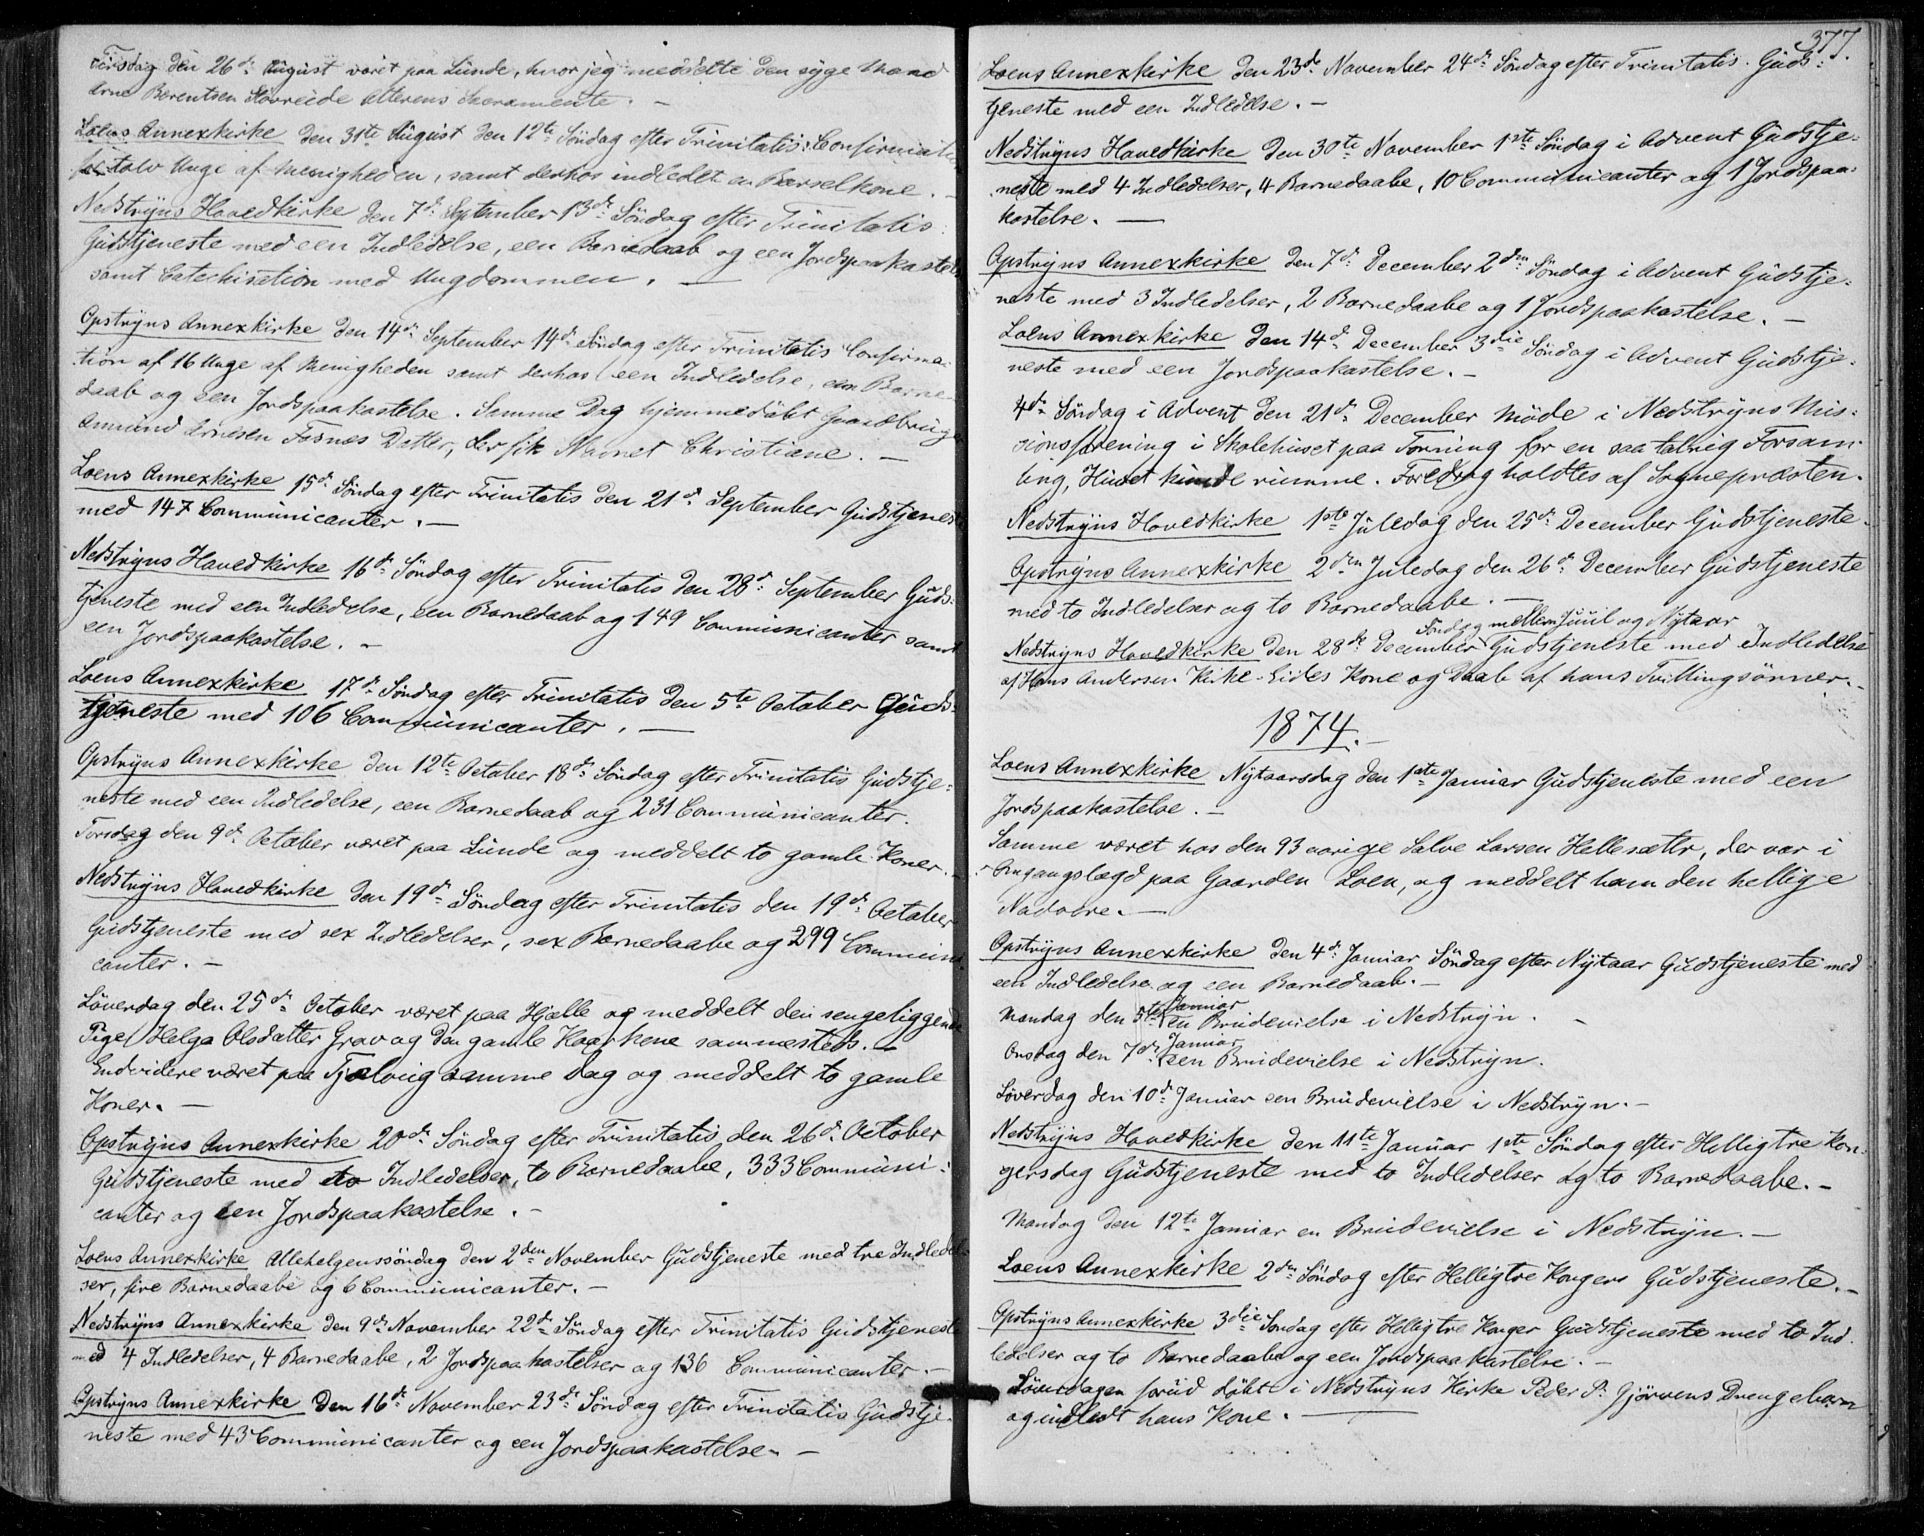 Tirsdag den 26de August været paa Lunde, hvor jeg meddelte den syge Mand
Arne Berentsen Alterens Sacramente. —
Loens Annexkirke den 31te August den 12te Søndag efter Trinitatis: Confirmation
tolv Unge af Menigheden, samt derhos indledet en Barselkone. —
Nedstryns Hovedkirke den 7de September 13de Søndag efter Trinitatis
Gudstjeneste med een Indledelse, een Barnedaab og een Jordspaakastelse
samt Catechisation med Ungdommen. —
Opstryns Annexkirke den 14de September 14de Søndag efter Trinitatis Confirma-
tion af 16 Unge af Menigheden samt derhos een Indledelse, een Barne-
daab og een Jordspaakastelse. Samme Dag hjemmedøbt Gaardbruger
Amund Arnesen Fosnes Datter, der fik Navnet Christiane. —
Loens Annexkirke 15de Søndag efter Trinitatis den 21de September Gudstjeneste
med 147 Communicanter. —
Nedstryns Hovedkirke 16de Søndag efter Trinitatis den 28de September Guds-
tjeneste med een Indledelse, een Barnedaab og 149 Communicanter samt
een Jordspaakastelse. —
Loens Annexkirke 17de Søndag efter Trinitatis den 5te October Guds-
tjeneste med 106 Communicanter. —
Opstryns Annexkirke den 12te October 18de Søndag efter Trinitatis Gudstje-
neste med een Indledelse, een Barnedaab og 231 Communicanter.
Torsdag den 9de October været paa Lunde og meddelt to gamle Koner. —
Nedstryns Hovedkirke den 19de Søndag efter Trinitatis den 19de October
Gudstjeneste med sex Indledelser, sex Barnedaabe og 299 Communi-
canter. —
Løverdag den 25de October været paa Hjelle og meddelt den sengeliggende
Pige Helga Olsdatter Grav og den gamle sammesteds. —
Endvidere været paa Tjelvig samme Dag og meddelt to gamle
Koner. —
Opstryns Annexkirke 20de Søndag efter Trinitatis den 26de October
Gudstjeneste med to Indledelser, to Barnedaabe, 333 Communi-
canter og een Jordspaakastelse. —
Loens Annexkirke Allehelgenssøndag den 2den November Gudstjeneste med tre Indledel-
ser, fire Barnedaabe og 6 Communicanter. —
Nedstryns Annexkirke den 9de November 22de Søndag efter Trinitatis Gudstjeneste
med 4 Indledelser, 4 Barnedaabe, 2 Jordspaakastelser og 136 Communicanter. —
Opstryns Annexkirke den 16de November 23de Søndag efter Trinitatis Gudstje-
neste med 43 Communicanter og een Jordspaakastelse. —
377.
Loens Annexkirke den 23de November 24de Søndag efter Trinitatis. Guds-
tjeneste med een Indledelse. —
Nedstryns Hovedkirke den 30te November 1ste Søndag i Advent Gudstje-
neste med 4 Indledelser, 4 Barnedaabe, 10 Communicanter og 1 Jordspaa-
kastelse. —
Opstryns Annexkirke den 7de December 2den Søndag i Advent Gudstje-
neste med 3 Indledelser, 2 Barnedaabe og 1 Jordspaakastelse. —
Loens Annexkirke den 14de December 3die Søndag i Advent Gudstje-
neste med een Jordspaakastelse. —
4de Søndag i Advent den 21de December Møde i Nedstryns Mis-
sionsforening i Skolehuset paa Tonning for en saa talrig Forsam-
ling, Huset kunde rumme. Foredrag holdtes af Sognepræsten.
Nedstryns Hovedkirke 1ste Juledag den 25de December Gudstjeneste.
Opstryns Annexkirke 2den Juledag den 26de December Gudstjeneste
med to Indledelser og to Barnedaabe. —
Søndag mellem Juul og Nytaar
Nedstryns Hovedkirke den 28de December Gudstjeneste med Indledelse
af Hans Andersen Kirke-Eides Kone og Daab af hans Tvillingsønner. —
1874. —
Loens Annexkirke Nytaarsdag den 1ste Januar Gudstjeneste med een
Jordspaakastelse. —
Samme været hos den 93 aarige Salve Larsen Hellesæter, der var i
Omgangslægd paa Gaarden Loen, og meddelt ham den hellige
Nadvere. —
Opstryns Annexkirke den 4de Januar Søndag efter Nytaar Gudstjeneste med
een Indledelse og een Barnedaab. —
Januar
Mandag den 5te een Brudevielse i Nedstryn. —
Januar
Onsdag den 7de een Brudevielse i Nedstryn.
Løverdag den 10de Januar een Brudevielse i Nedstryn. —
Nedstryns Hovedkirke den 11te Januar 1ste Søndag efter Helligtre Kon-
gersdag Gudstjeneste med to Indledelser og to Barnedaabe. —
Mandag den 12te Januar en Brudevielse i Nedstryn. —
Loens Annexkirke 2den Søndag efter Helligtre Kongers Gudstjeneste. —
Opstryns Annexkirke 3die Søndag efter Helligtre Konger Gudstjeneste med to Ind-
ledelser og to Barnedaabe og een Jordspaakastelse. —
Løverdagen forud døbt i Nedstryns Kirke Peder P. Gjørvens Drengebarn
og indledt hans Kone. —